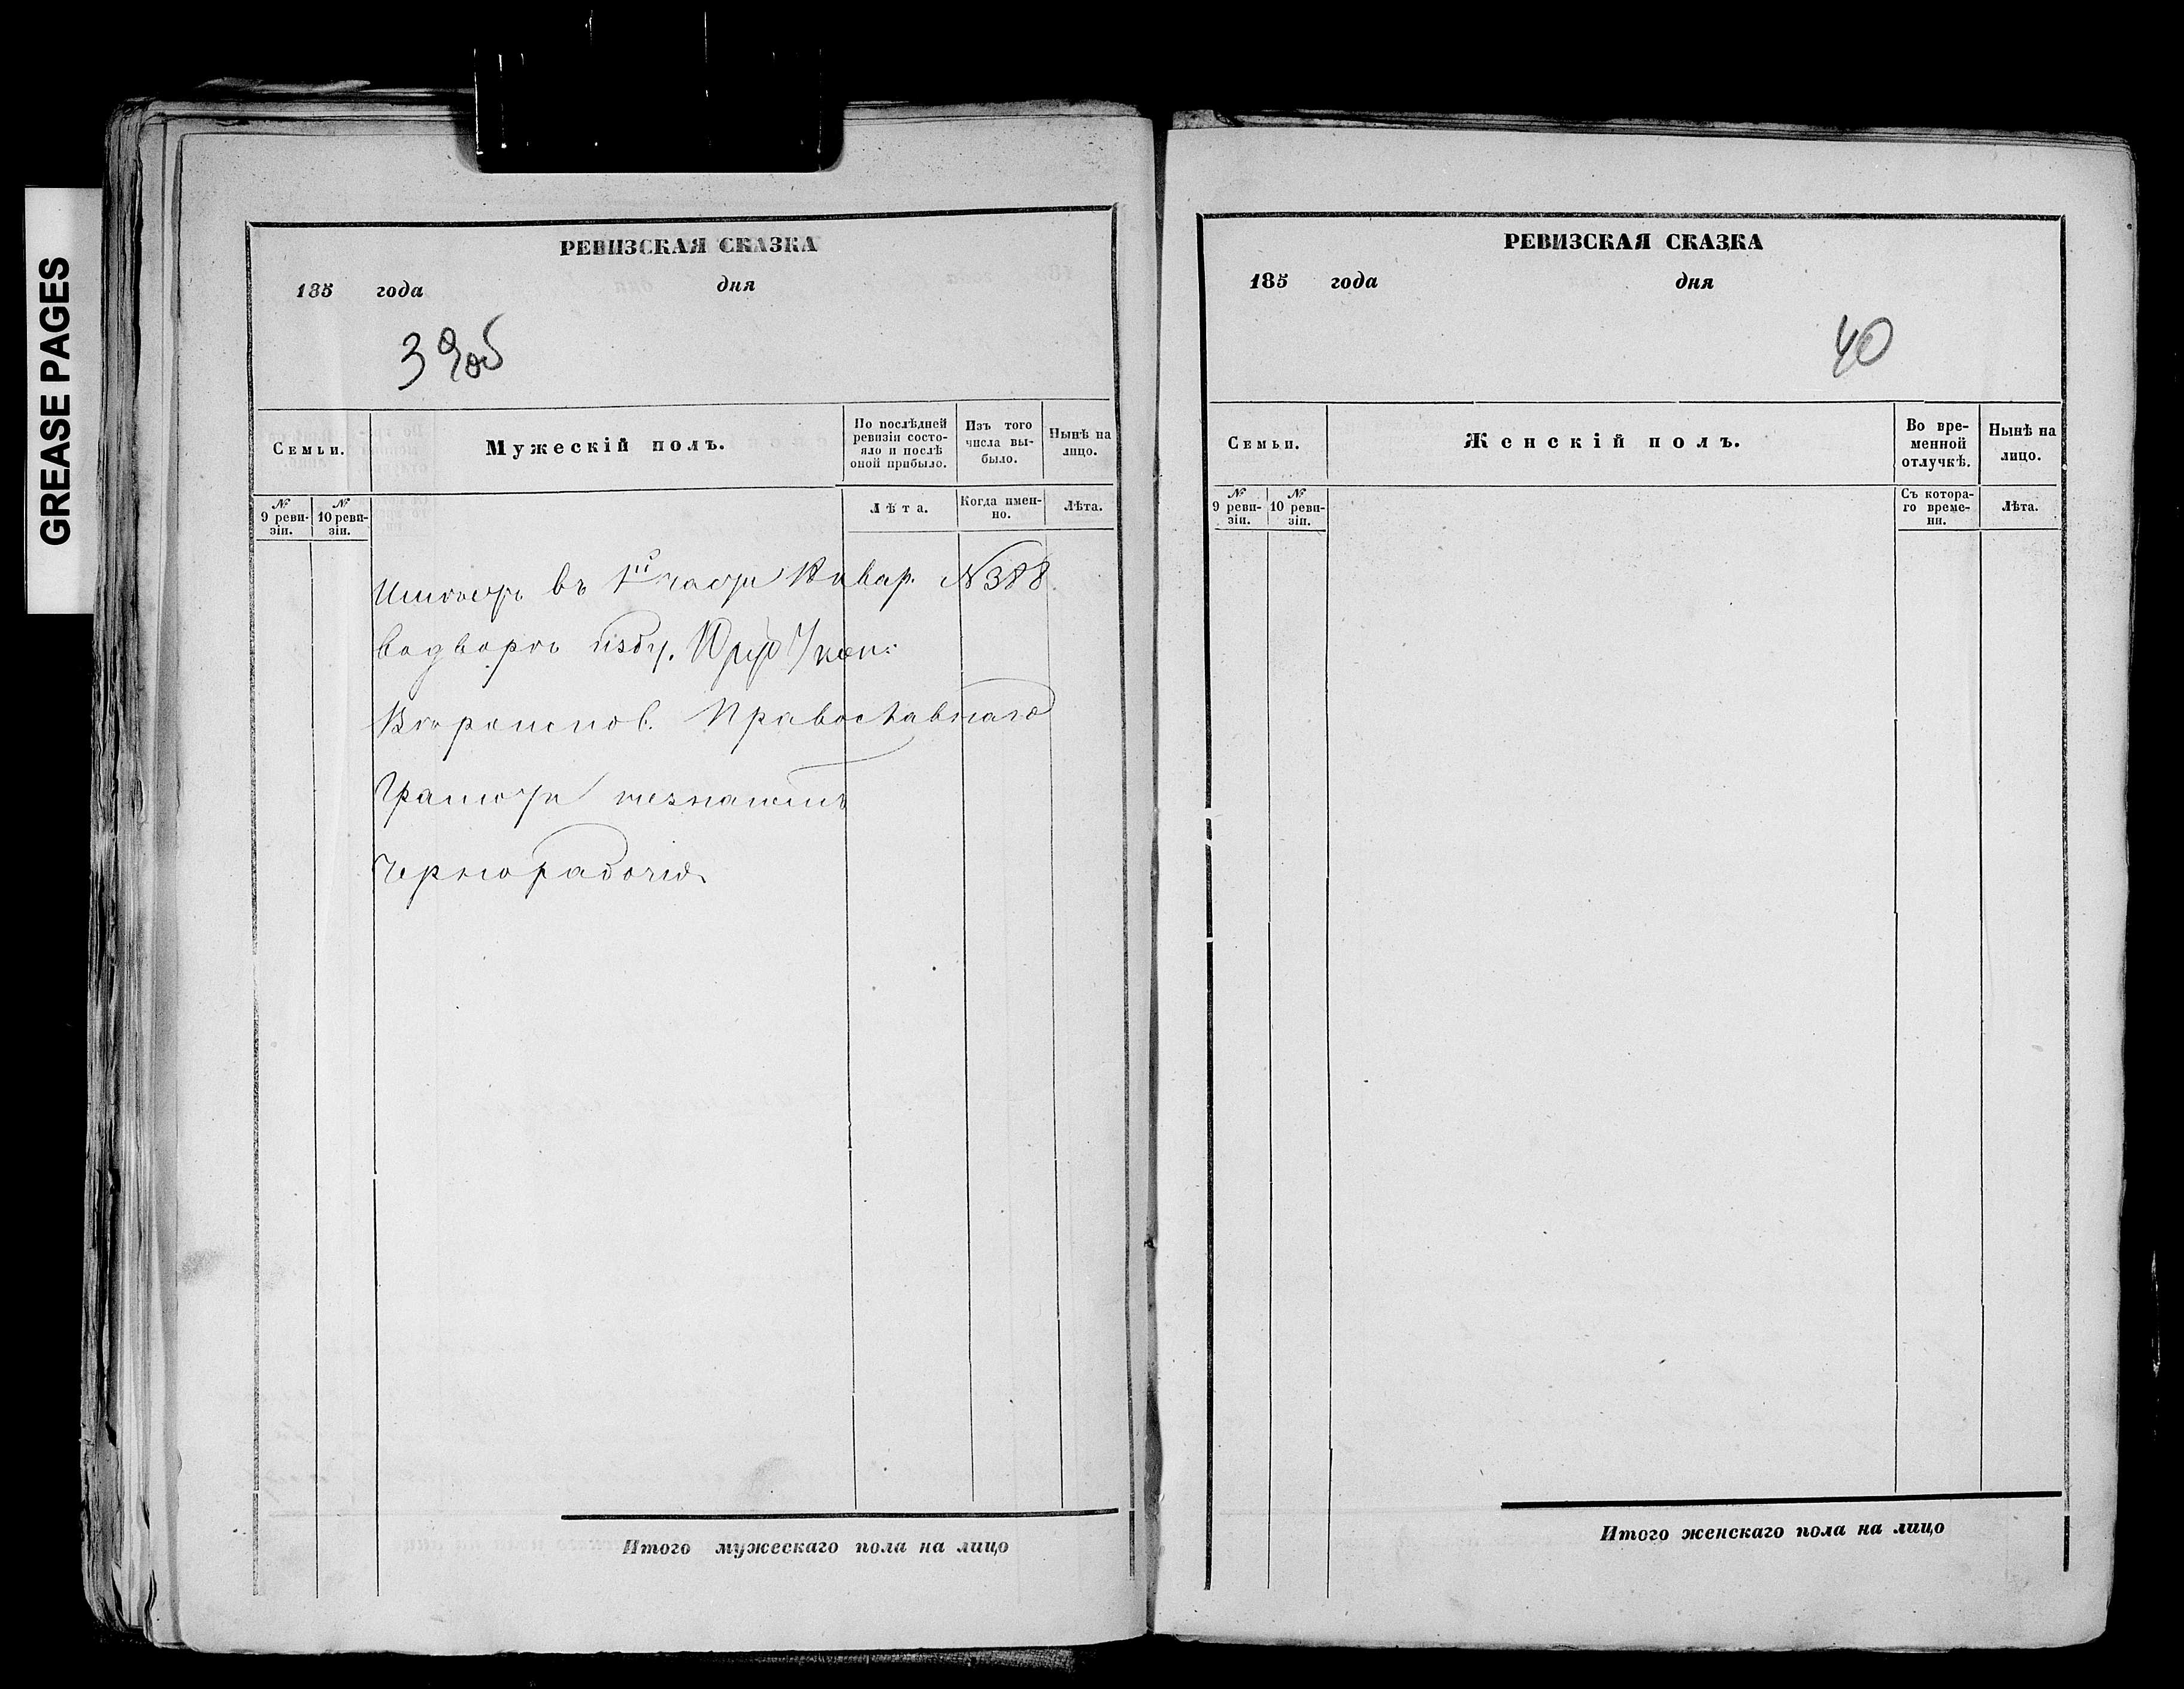 GREASE PAGES
РЕВИЗСКАЯ СКАЗКА
185 года дня
39об
Семьи.
Мужескій полъ.
По послѣдней ревизіи состояло и послѣ оной прибыло.
Изъ того числа выбыло.
Нынѣ на лицо.
№ 9 ревизіи.
№ 10 ревизіи.
Лѣта.
Когда именно.
Лѣта.
Имѣетъ въ 1й части Квар. №388
водворѣ избу.
Вѣроиспов. Православнаго
Грамоты незнаютъ
Чернорабочіе
Итого мужескаго пола на лицо
РЕВИЗСКАЯ СКАЗКА
185 года дня
40
Семьи.
Женскій полъ.
Во временной отлучкѣ.
Нынѣ на лицо.
№ 9 ревизіи.
№ 10 ревизіи.
Съ котораго времени.
Лѣта.
Итого женскаго пола на лицо